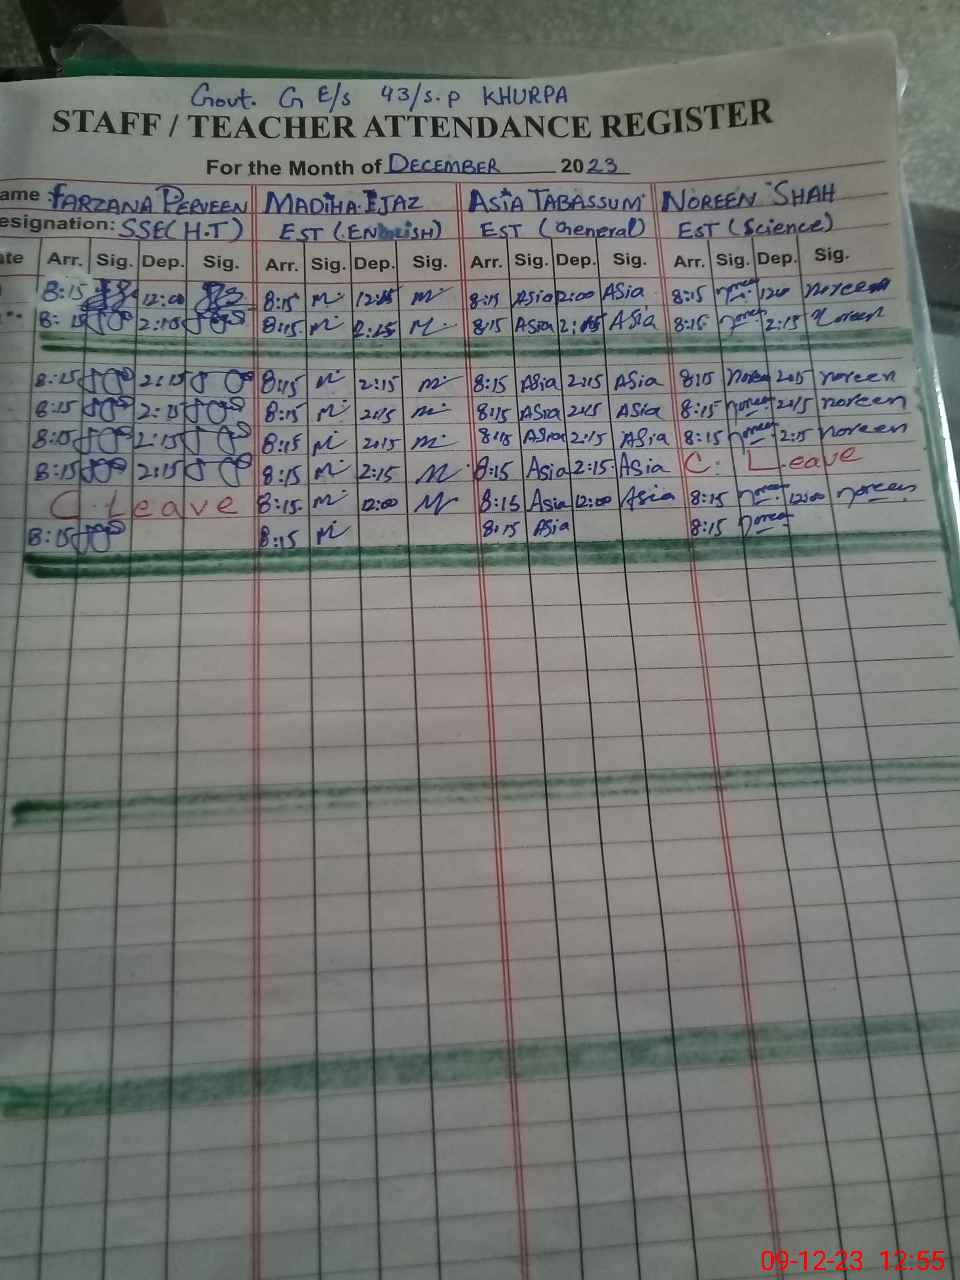 Govt. G E/s 43/s.p KHURPA
STAFF / TEACHER ATTENDANCE REGISTER
For the Month of DECEMBER 2023
ame FARZANA PERVEEN MADIHA IJAZ ASIA TABASSUM NOREEN SHAH
esignation: SSE(H.T) EST (ENGLISH) EST (General) EST (Science)
ate Arr. Sig. Dep. Sig. Arr. Sig. Dep. Sig. Arr. Sig. Dep. Sig. Arr. Sig. Dep. Sig.
8:15 12:00 8:15 M 12:15 M 8:15 Asia 2:00 ASia 8:15 noreen
8:15 2:15 8:15 M 2:15 M 8:15 Asia ASia 8:15 2:15 Noreen
8:15 2:15 8:15 M 2:15 M 8:15 ASia 2:15 ASia 8:15 Noreen 2:15 noreen
8:15 2:15 8:15 M 2:15 M 8:15 ASia 2:15 ASia 8:15 2:15 noreen
8:15 2:15 8:15 M 2:15 M 8:15 ASia 2:15 ASia 8:15 2:15 noreen
8:15 2:15 8:15 M 2:15 M 8:15 Asia 2:15 Asia C. Leave
C. Leave 8:15 M 12:00 M 8:15 Asia 12:00 Asia 8:15 12:00 noreen
8:15 8:15 M 8:15 Asia 8:15
09-12-23 12:55